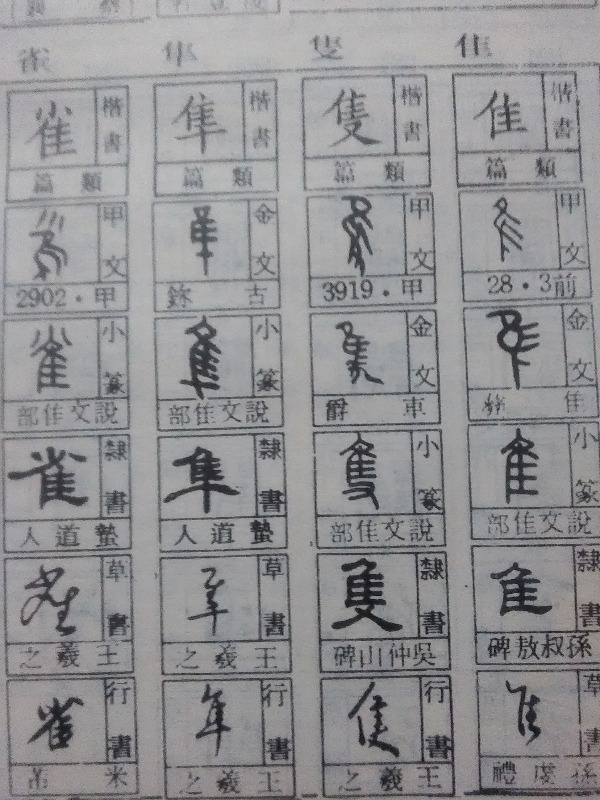 隹
楷書
隹
類篇
甲文
隹
前3·28
金文
隹
隹
小篆
隹
說文隹部
隸書
隹
孫叔敖碑
草書
隹
孫虔禮
隻
楷書
隻
類篇
甲文
隻
甲·3919
金文
隻
車爵
小篆
隻
說文隹部
隸書
隻
吳仲山碑
行書
隻
王羲之
隼
楷書
隼
類篇
金文
隼
古鉨
小篆
隼
說文隹部
隸書
隼
蟄道人
草書
隼
王羲之
行書
隼
王羲之
雀
楷書
雀
類篇
甲文
雀
甲·2902
小篆
雀
說文隹部
隸書
雀
蟄道人
草書
雀
王羲之
行書
雀
米芾